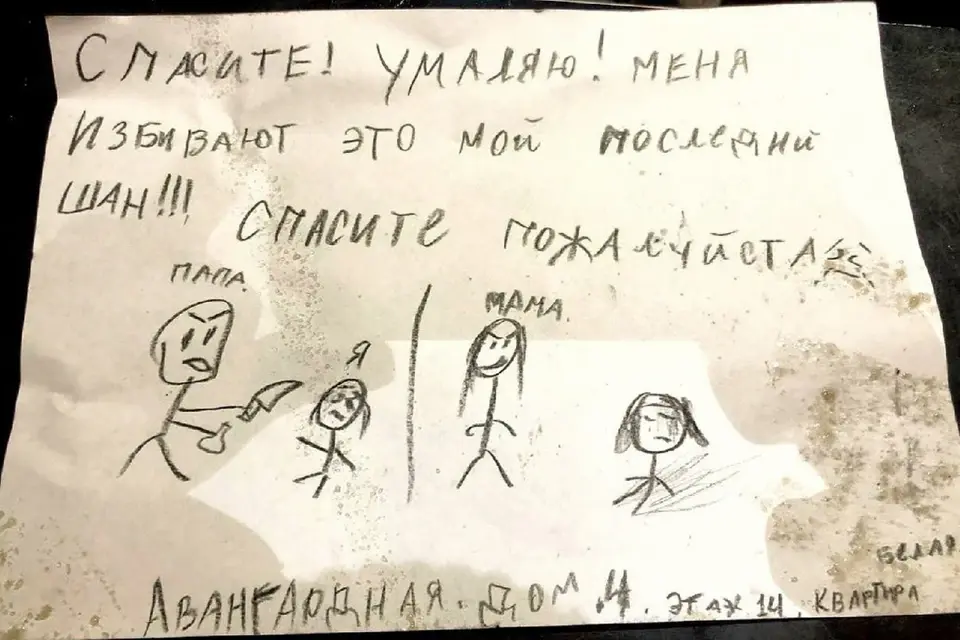 СПАСИТЕ! УМАЛЯЮ! МЕНЯ
ИЗБИВАЮТ ЭТО МОЙ ПОСЛЕДНИ
ШАН!!!
СПАСИТЕ ПОЖАЛУЙСТА
ПАПА
Я
МАМА
АВАНГАРДНАЯ. ДОМ 4. ЭТАЖ 14. КВАРТИРА
БЕЛАЯ